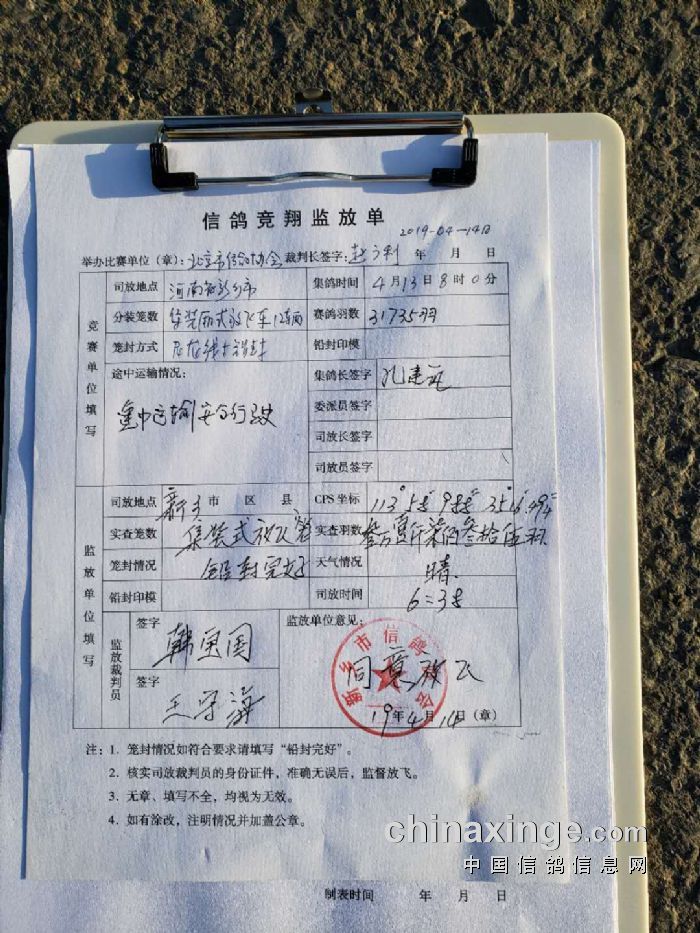 信鸽竞翔监放单
2019-04-14日
举办比赛单位（章）：北京市信鸽协会 裁判长签字： 年 月 日
竞赛单位填写
司放地点 河南省新乡市 集鸽时间 4月13日8时0分
分装笼数 集装厢式放飞车12车两 赛鸽羽数 31735羽
笼封方式 铅封印模
途中运输情况： 集鸽长签字 孔建
途中运输安全行驶 委派员签字
司放长签字
司放员签字
监放单位填写
司放地点 新乡 市 区 县 CPS 坐标 113°58
实查笼数 集装式放飞 实查羽数 叁万壹仟柒佰叁拾伍羽
笼封情况 铅封完好 天气情况 晴.
铅封印模 司放时间 6:38
监放裁判员 签字 韩宝国 监放单位意见：
签字 王守海 同意放飞
新乡市信鸽 会
19年4月14日（章）
注：1．笼封情况如符合要求请填写“铅封完好”。
2．核实司放裁判员的身份证件，准确无误后，监督放飞。
3．无章、填写不全，均视为无效。
4．如有涂改，注明情况并加盖公章。
chinaxinge.com
中国信鸽信息网
制表时间 年 月 日